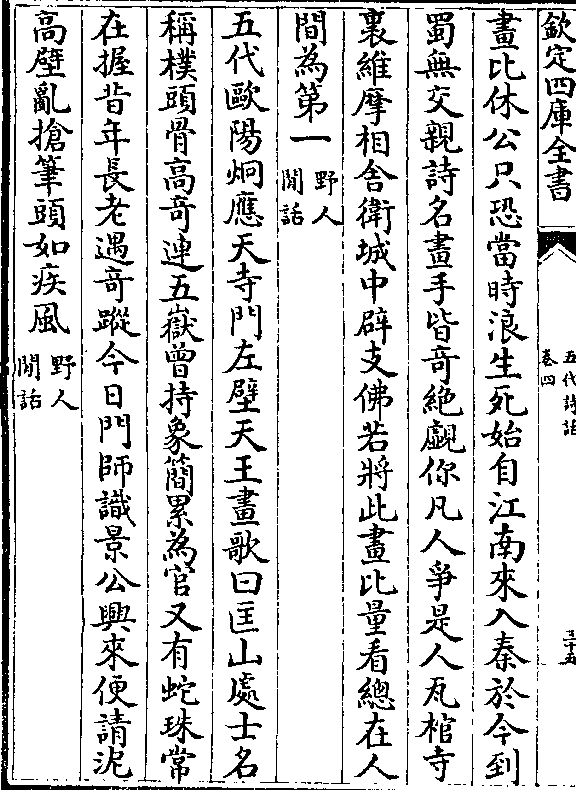 欽定四庫全書
五代詩話
卷四
三十五
畫比休公只恐當時浪生死始自江南來入秦於今到
蜀無交親詩名畫手皆奇絶覰你凡人爭是人瓦棺寺
裏維摩相舍衛城中辟支佛若將此畫比量看總在人
間為第一
野人
閒話
五代歐陽炯應天寺門左壁天王畫歌曰匡山處士名
稱樸頭骨高竒連五嶽曾持象簡累為官又有蛇珠常
在握昔年長老遇竒蹤今日門師識景公興來便請泥
高壁亂搶筆頭如疾風
野人
閒話